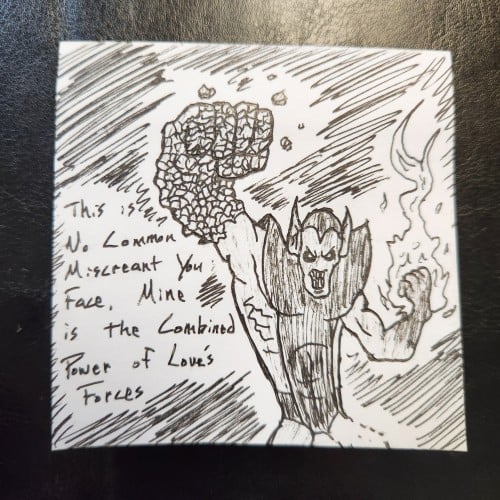 This is
No Common
Miscreant You
Face, Mine
is the Combined
Power of Love's
Forces